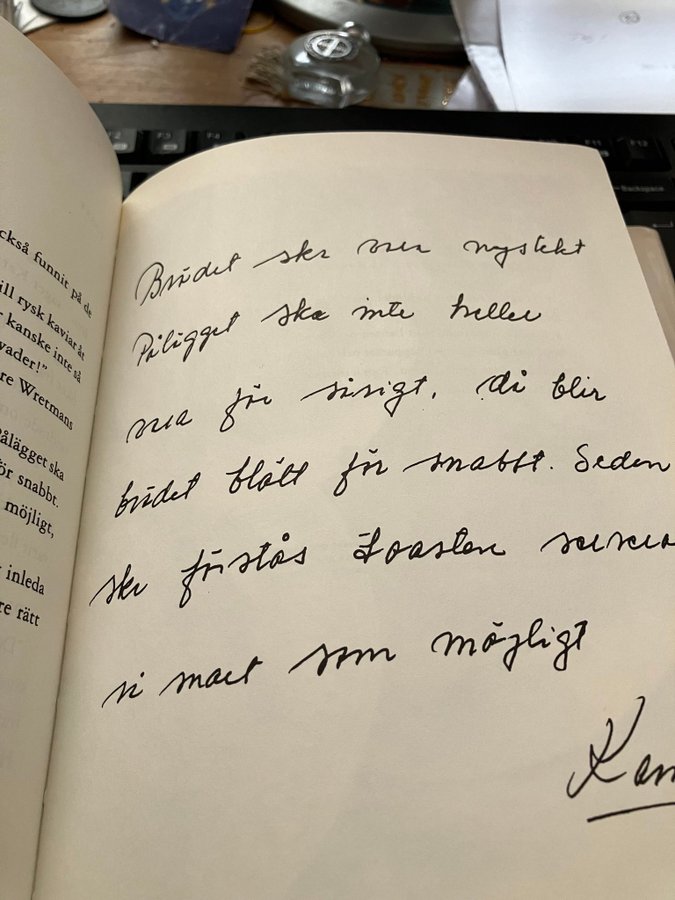 ckså funnit på de
ill rysk kaviar åt
kanske inte så
vader!"
re Wretmans
ålägget ska
ör snabbt.
möjligt,
inleda
re rätt
Brödet ska vara nystekt
Pålägget ska inte heller
vara för såsigt, då blir
brödet blött för snabbt. Sedan
ska förstås toasten serveras
så snart som möjligt
Kam
F11
F12
Backspace